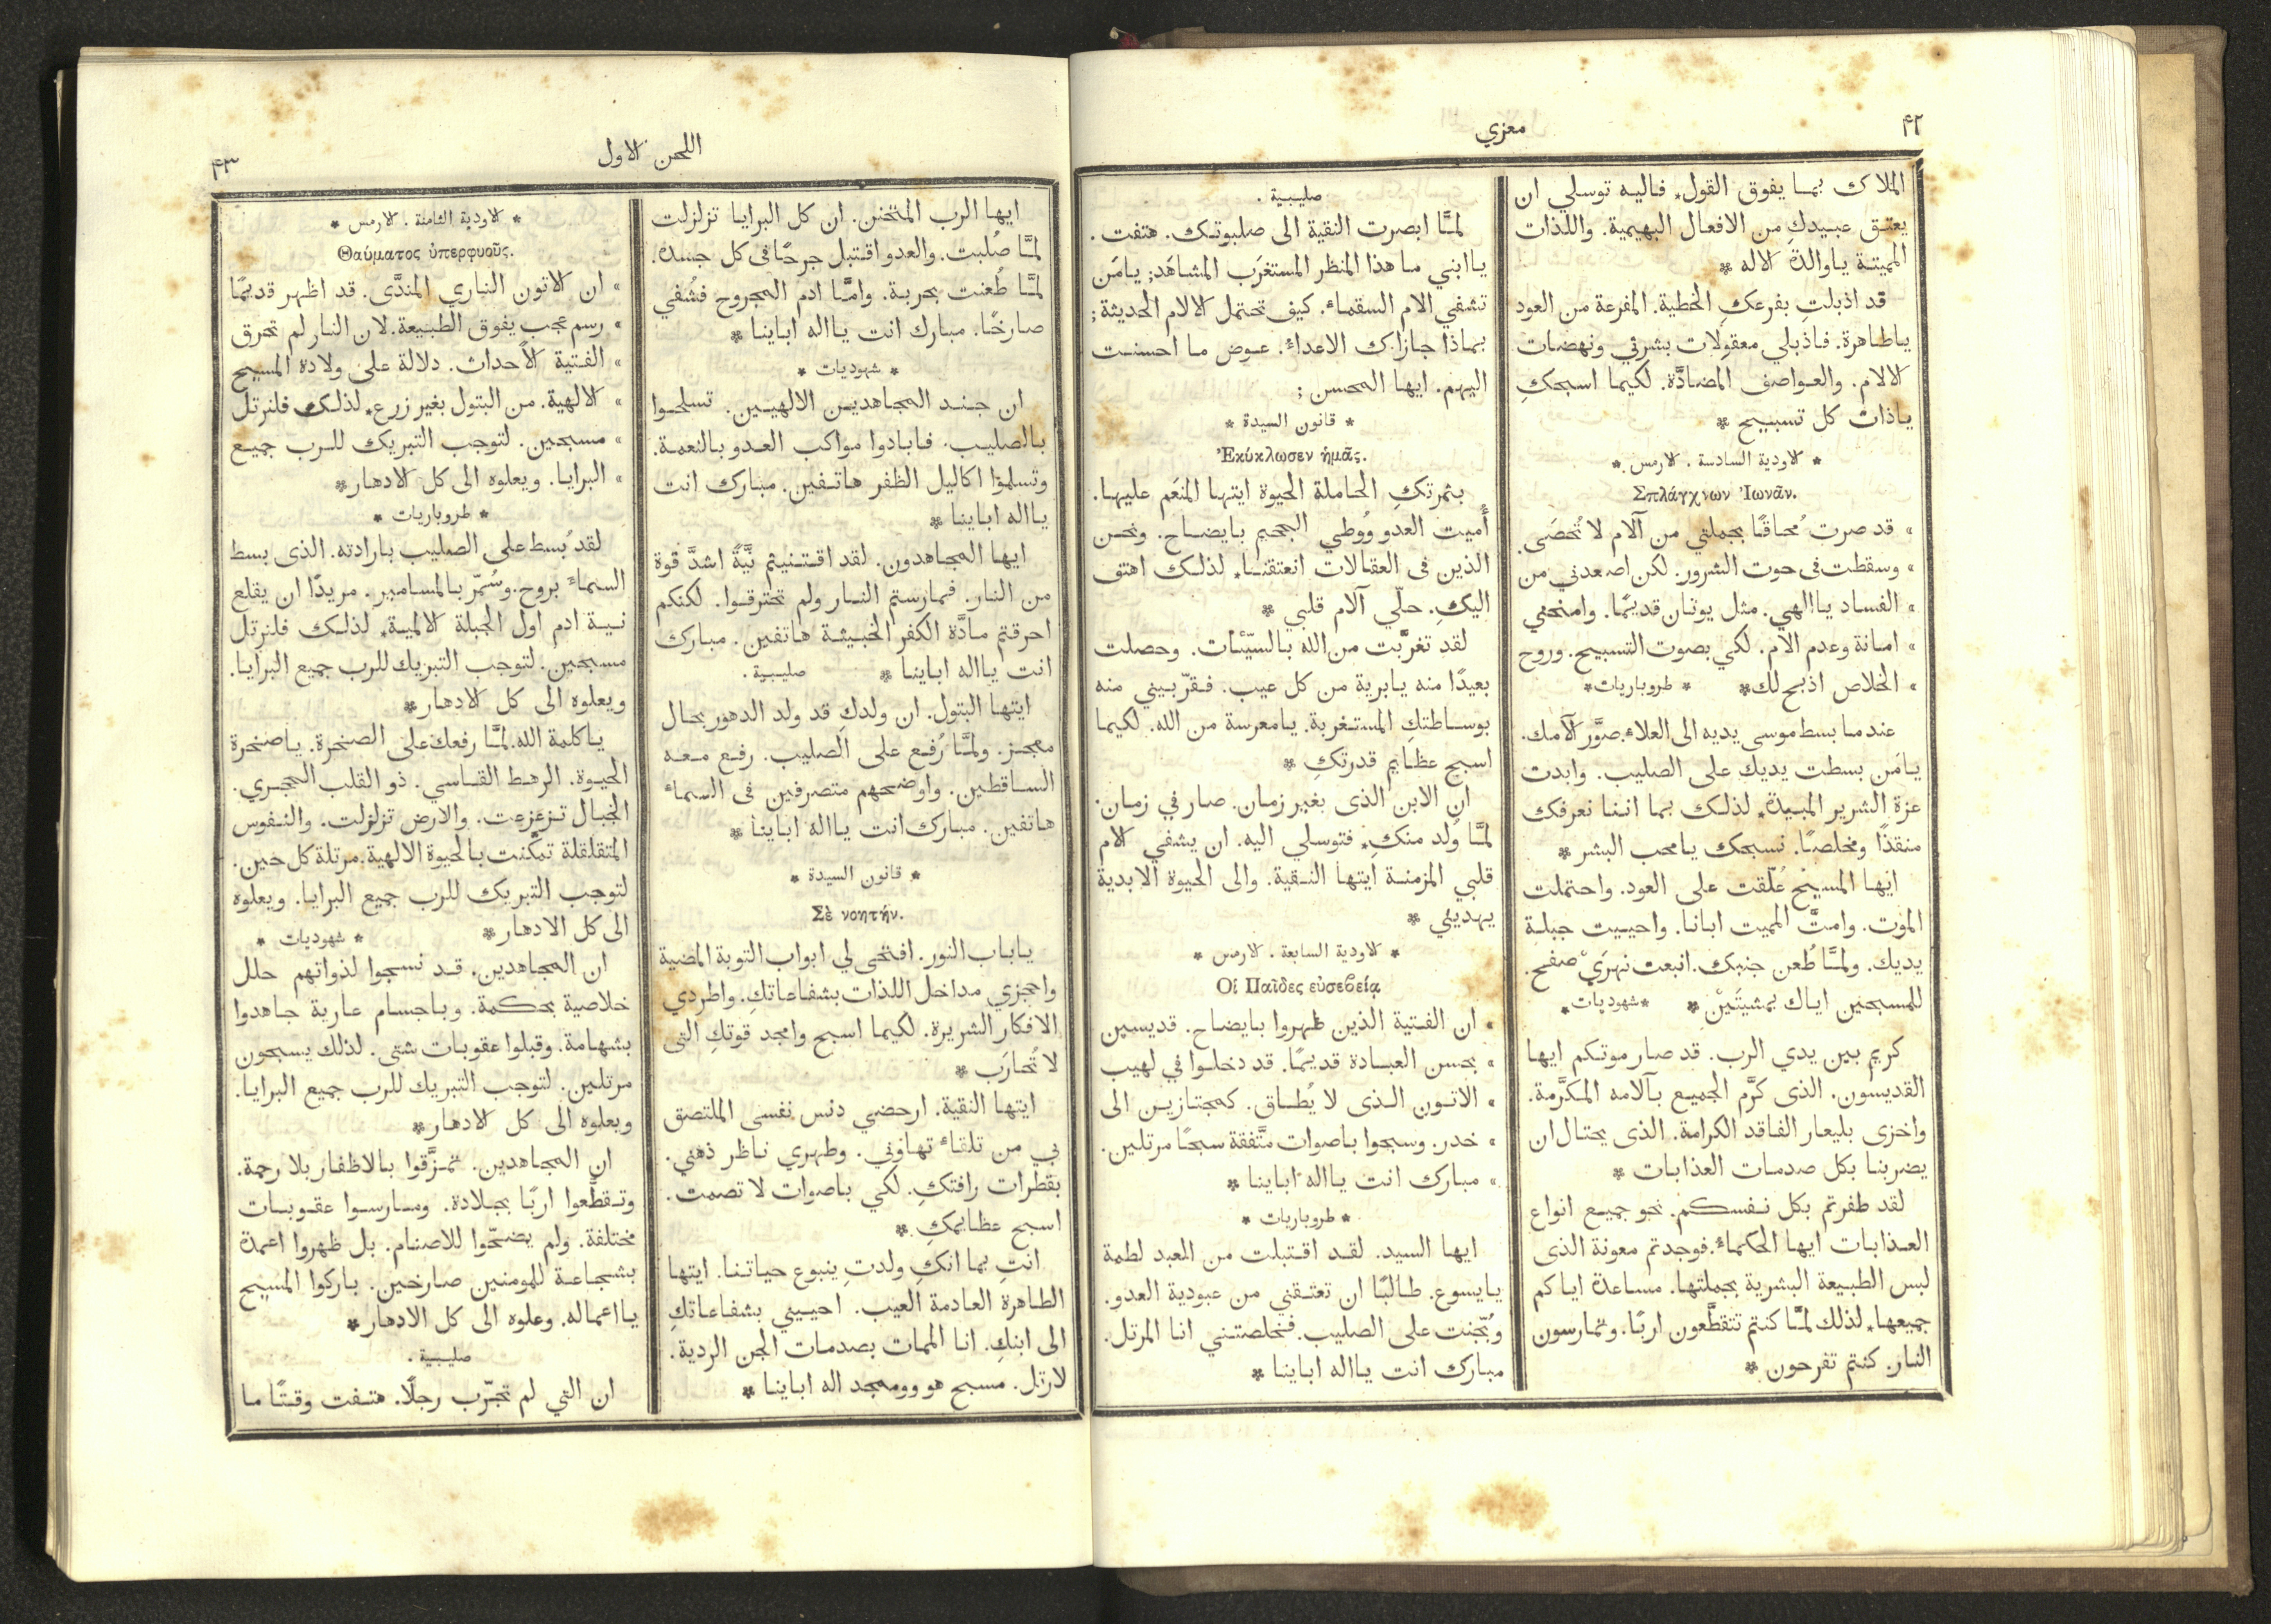 ٤٢
معزي
الملاك بما يفوق القول٭ فاليه توسلي ان
يعتق عبيدكِ من الافعال البهيمية. واللذات
المميتة ياوالدة الاله ٭
قد اذبلتِ بفرعكِ الخطية. المفرعة من العود
ياطاهرة. فاذبلي معقولات بشرتي ونهضات
الالام. والعواصف المضادَّة. لكيما اسبحكِ
ياذات كل تسبيح ٭
٭ الاودية السادسة . الارمس ٭
Σπλάγχνων Ἰωνᾶν.
» قد صرت مُحاقًا بجملتي من آلام لا تُحصَى.
» وسقطت فى حوت الشرور. لكن اصعدني من
» الفساد ياالهي. مثل يونان قديمًا. وامنحني
» امانة وعدم الام. لكي بصوت التسبيح. وروح
» الخلاص اذبح لك٭ ٭ طروباريات٭
عندما بسط موسى يديه الى العلاء. صوَّر آلامك.
يامَن بسطت يديك على الصليب. وابدت
عزة الشرير المبيدة٭ لذلك بما اننا نعرفك
منقذًا ومخلصًا. نسبحك يامحب البشر ٭
ايها المسيح عُلّقت على العود. واحتملت
الموت. وامتَّ المميت ابانا. واحييت جبلة
يديك. ولمَّا طُعن جنبك. انبعت نهرَيْ صفح.
للمسبحين اياك بمشيتَيْنِ ٭ ٭شهوديات٭
كريم بين يدي الرب. قد صار موتكم ايها
القديسون. الذى كرَّم الجميع بآلامه المكرَّمة.
واخزى بليعار الفاقد الكرامة. الذى يحتال ان
يضربنا بكل صدمات العذابات ٭
لقد طفرتم بكل نفسكم. نحو جميع انواع
العذابات ايها الحكماء. فوجدتم معونة الذى
لبس الطبيعة البشرية بجملتها. مساعدة اياكم
جميعها٭ لذلك لمَّا كنتم تتقطَّعون اربًا. وتمارسون
النار. كنتم تفرحون ٭
صليبية .
لمَّا ابصرت النقية الى صلبوتك. هتفت .
ياابني ما هذا المنظر المستغرَب المشاهَد; يامَن
تشفي الام السقماء. كيف تحتمل الالام الحديثة;
بماذا جازاك الاعداء. عوض ما احسنت
اليهم. ايها المحسن ;
٭ قانون السيدة ٭
Ἐκύκλωσεν ἡμᾶς.
بثمرتكِ الحاملة الحيوة ايتها المنعَم عليها.
أُميت العدو ووُطي الجحيم بايضاح. ونحن
الذين فى العقالات انعتقنا٭ لذلك اهتف
اليكِ. حلّي آلام قلبي ٭
لقد تغرَّبت من الله بالسيّئات. وحصلت
بعيدًا منه يابرية من كل عيب. فقرّبيني منه
بوساطتكِ المستغربة. يامعرسة من الله. لكيما
اسبح عظايم قدرتكِ ٭
ان الابن الذى بغير زمان. صار في زمان.
لمَّا وُلد منكِ٭ فتوسلي اليه. ان يشفي الام
قلبي المزمنة ايتها النقية. والى الحيوة الابدية
يهديني ٭
٭ الاودية السابعة . الارمس ٭
Οἱ Παῖδες εὐσεβείᾳ
» ان الفتية الذين ظهروا بايضاح. قديسين
» بحسن العبادة قديمًا. قد دخلوا في لهيب
» الاتون الذى لا يُطاق. كمجتازين الى
» خدر. وسبحوا باصوات متَّفقة سبحًا مرتلين.
» مبارك انت يااله اباينا ٭
٭ طروباريات ٭
ايها السيد. لقد اقتبلت من العبد لطمة
يايسوع. طالبًا ان تعتقني من عبودية العدو.
وبُخّنت على الصليب. فخلصتني انا المرتل.
مبارك انت يااله اباينا ٭
اللحن الاول
٤٣
ايها الرب المتحنن. ان كل البرايا تزلزلت
لمَّا صُلبت. والعدو اقتبل جرحًا فى كل جسده.
لمَّا طُعنت بحربة. وامَّا ادم المجروح فشُفي
صارخًا. مبارك انت يااله اباينا ٭
٭ شهوديات ٭
ان جند المجاهدين الالهيين. تسلحوا
بالصليب. فابادوا مواكب العدو بالنعمة.
وتسلموا اكاليل الظفر هاتفين. مبارك انت
يااله اباينا ٭
ايها المجاهدون. لقد اقتنيتم نيَّةً اشدَّ قوة
من النار. فمارستم النار ولم تحترقوا. لكنكم
احرقتم مادَّة الكفر الخبيثة هاتفين. مبارك
انت يااله اباينا ٭ صليبية .
ايتها البتول. ان ولدكِ قد ولد الدهور بحال
معجز. ولمَّا رُفع على الصليب. رفع معه
الساقطين. واوضحهم متصرفين فى السماء
هاتفين. مبارك انت يااله اباينا ٭
٭ قانون السيدة ٭
Σὲ νοητήν.
ياباب النور. افتحى لي ابواب التوبة المضية
واحجزي مداخل اللذات بشفاعاتكِ. واطردي
الافكار الشريرة. لكيما اسبح وامجد قوتكِ التى
لا تُحارَب ٭
ايتها النقية. ارحضي دنس نفسى الملتصق
بي من تلقاء تهاوني. وطهري ناظر ذهني.
بقطرات رافتكِ. لكي باصوات لا تصمت.
اسبح عظايمكِ ٭
انتِ بما انكِ ولدتِ ينبوع حياتنا. ايتها
الطاهرة العادمة العيب. احييني بشفاعاتكِ
الى ابنكِ. انا الممات بصدمات الجن الردية.
لارتل. مسبح هو وومجد اله اباينا ٭
٭ الاودية الثامنة . الارمس ٭
Θαύματος ὑπερφυοῦς.
» ان الاتون الناري المندَّى. قد اظهر قديمًا
» رسم عجب يفوق الطبيعة. لان النار لم تحرق
» الفتية الأحداث. دلالة على ولادة المسيح
» الالهية. من البتول بغير زرع٭ لذلك فلنرتل
» مسبحين. لتوجب التبريك للرب جميع
» البرايا. ويعلوه الى كل الادهار٭
٭ طروباريات ٭
لقد بُسط على الصليب بارادته. الذى بسط
السماء بروح. وسُمّر بالمسامير. مريدًا ان يقلع
نية ادم اول الجبلة الالمية٭ لذلك فلنرتل
مسبحين. لتوجب التبريك للرب جميع البرايا.
ويعلوه الى كل الادهار٭
ياكلمة الله. لمَّا رفعك على الصخرة. ياصخرة
الحيوة. الرهط القاسي. ذو القلب الحجري.
الجبال تزعزعت. والارض تزلزلت. والنفوس
المتقلقلة تمكَّنت بالحيوة الالهية. مرتلة كل حين.
لتوجب التبريك للرب جميع البرايا. ويعلوه
الى كل الادهار٭ ٭ شهوديات ٭
ان المجاهدين. قد نسجوا لذواتهم حلل
خلاصية بحكمة. وباجسام عارية جاهدوا
بشهامة. وقبلوا عقوبات شتى. لذلك يسبحون
مرتلين. لتوجب التبريك للرب جميع البرايا.
ويعلوه الى كل الادهار٭
ان المجاهدين. تمزَّقوا بالاظفار بلا رحمة.
وتقطَّعوا اربًا بجلادة. ومارسوا عقوبات
مختلفة. ولم يضحّوا للاصنام. بل ظهروا اعمدة
بشجاعة للمومنين صارخين. باركوا المسيح
يااعماله. وعلوه الى كل الادهار٭
صليبية .
ان التي لم تجرّب رجلًا. هتفت وقتًا ما